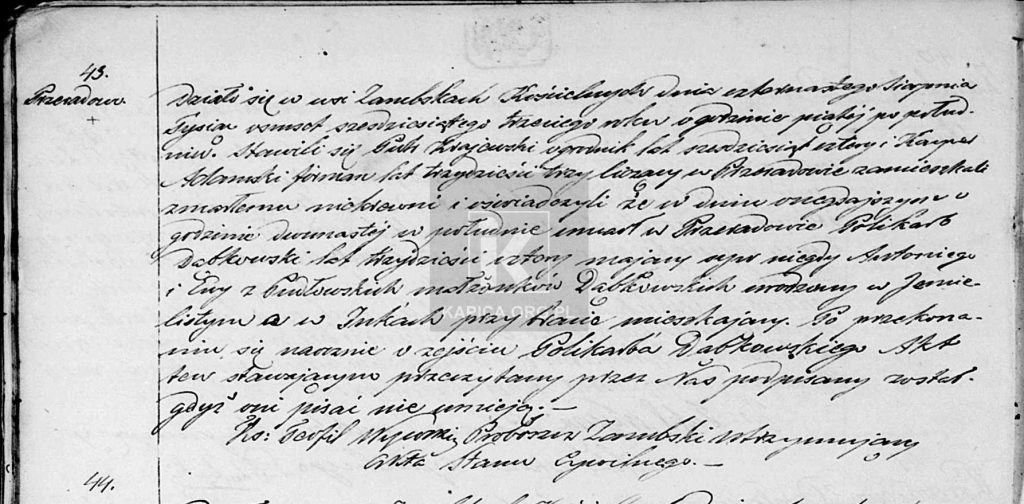 43.
Przeradowo
+
Działo się w wsi Zambskach Kościelnych dnia czternastego Sierpnia
Tysiąc osmset szesdziesiątego trzeciego roku o godzinie piątej po połud-
niu. Stawili się Krajewski ogrodnik lat szesdziesiąt cztery i Kacper
Adamski forman lat trzydzieści trzy liczący w Przeradowie zamieszkali
zmarłemu niekrewni i oświadczyli że w dniu wczorajszym o
godzinie dwunastej w południe umarł w Przeradowie Polikarb
Dąbkowski lat trzydzieści cztery mający syn niegdy Antoniego
i Ewy z Pudłowskich małżonków Dąbkowskich urodzony w Jemie-
listym a w Jukach przy bracie mieszkający. Po przekona-
niu się naocznie o zejściu Polikarba Dąbkowskiego Akt
ten stawającym przeczytany przez Nas podpisany został
gdyż oni pisać nie umieją. —
Ks: Teofil Proboszcz Zambski utrzymujący
Akta Stanu Cywilnego. —
44.
KARICA.ORG.PL